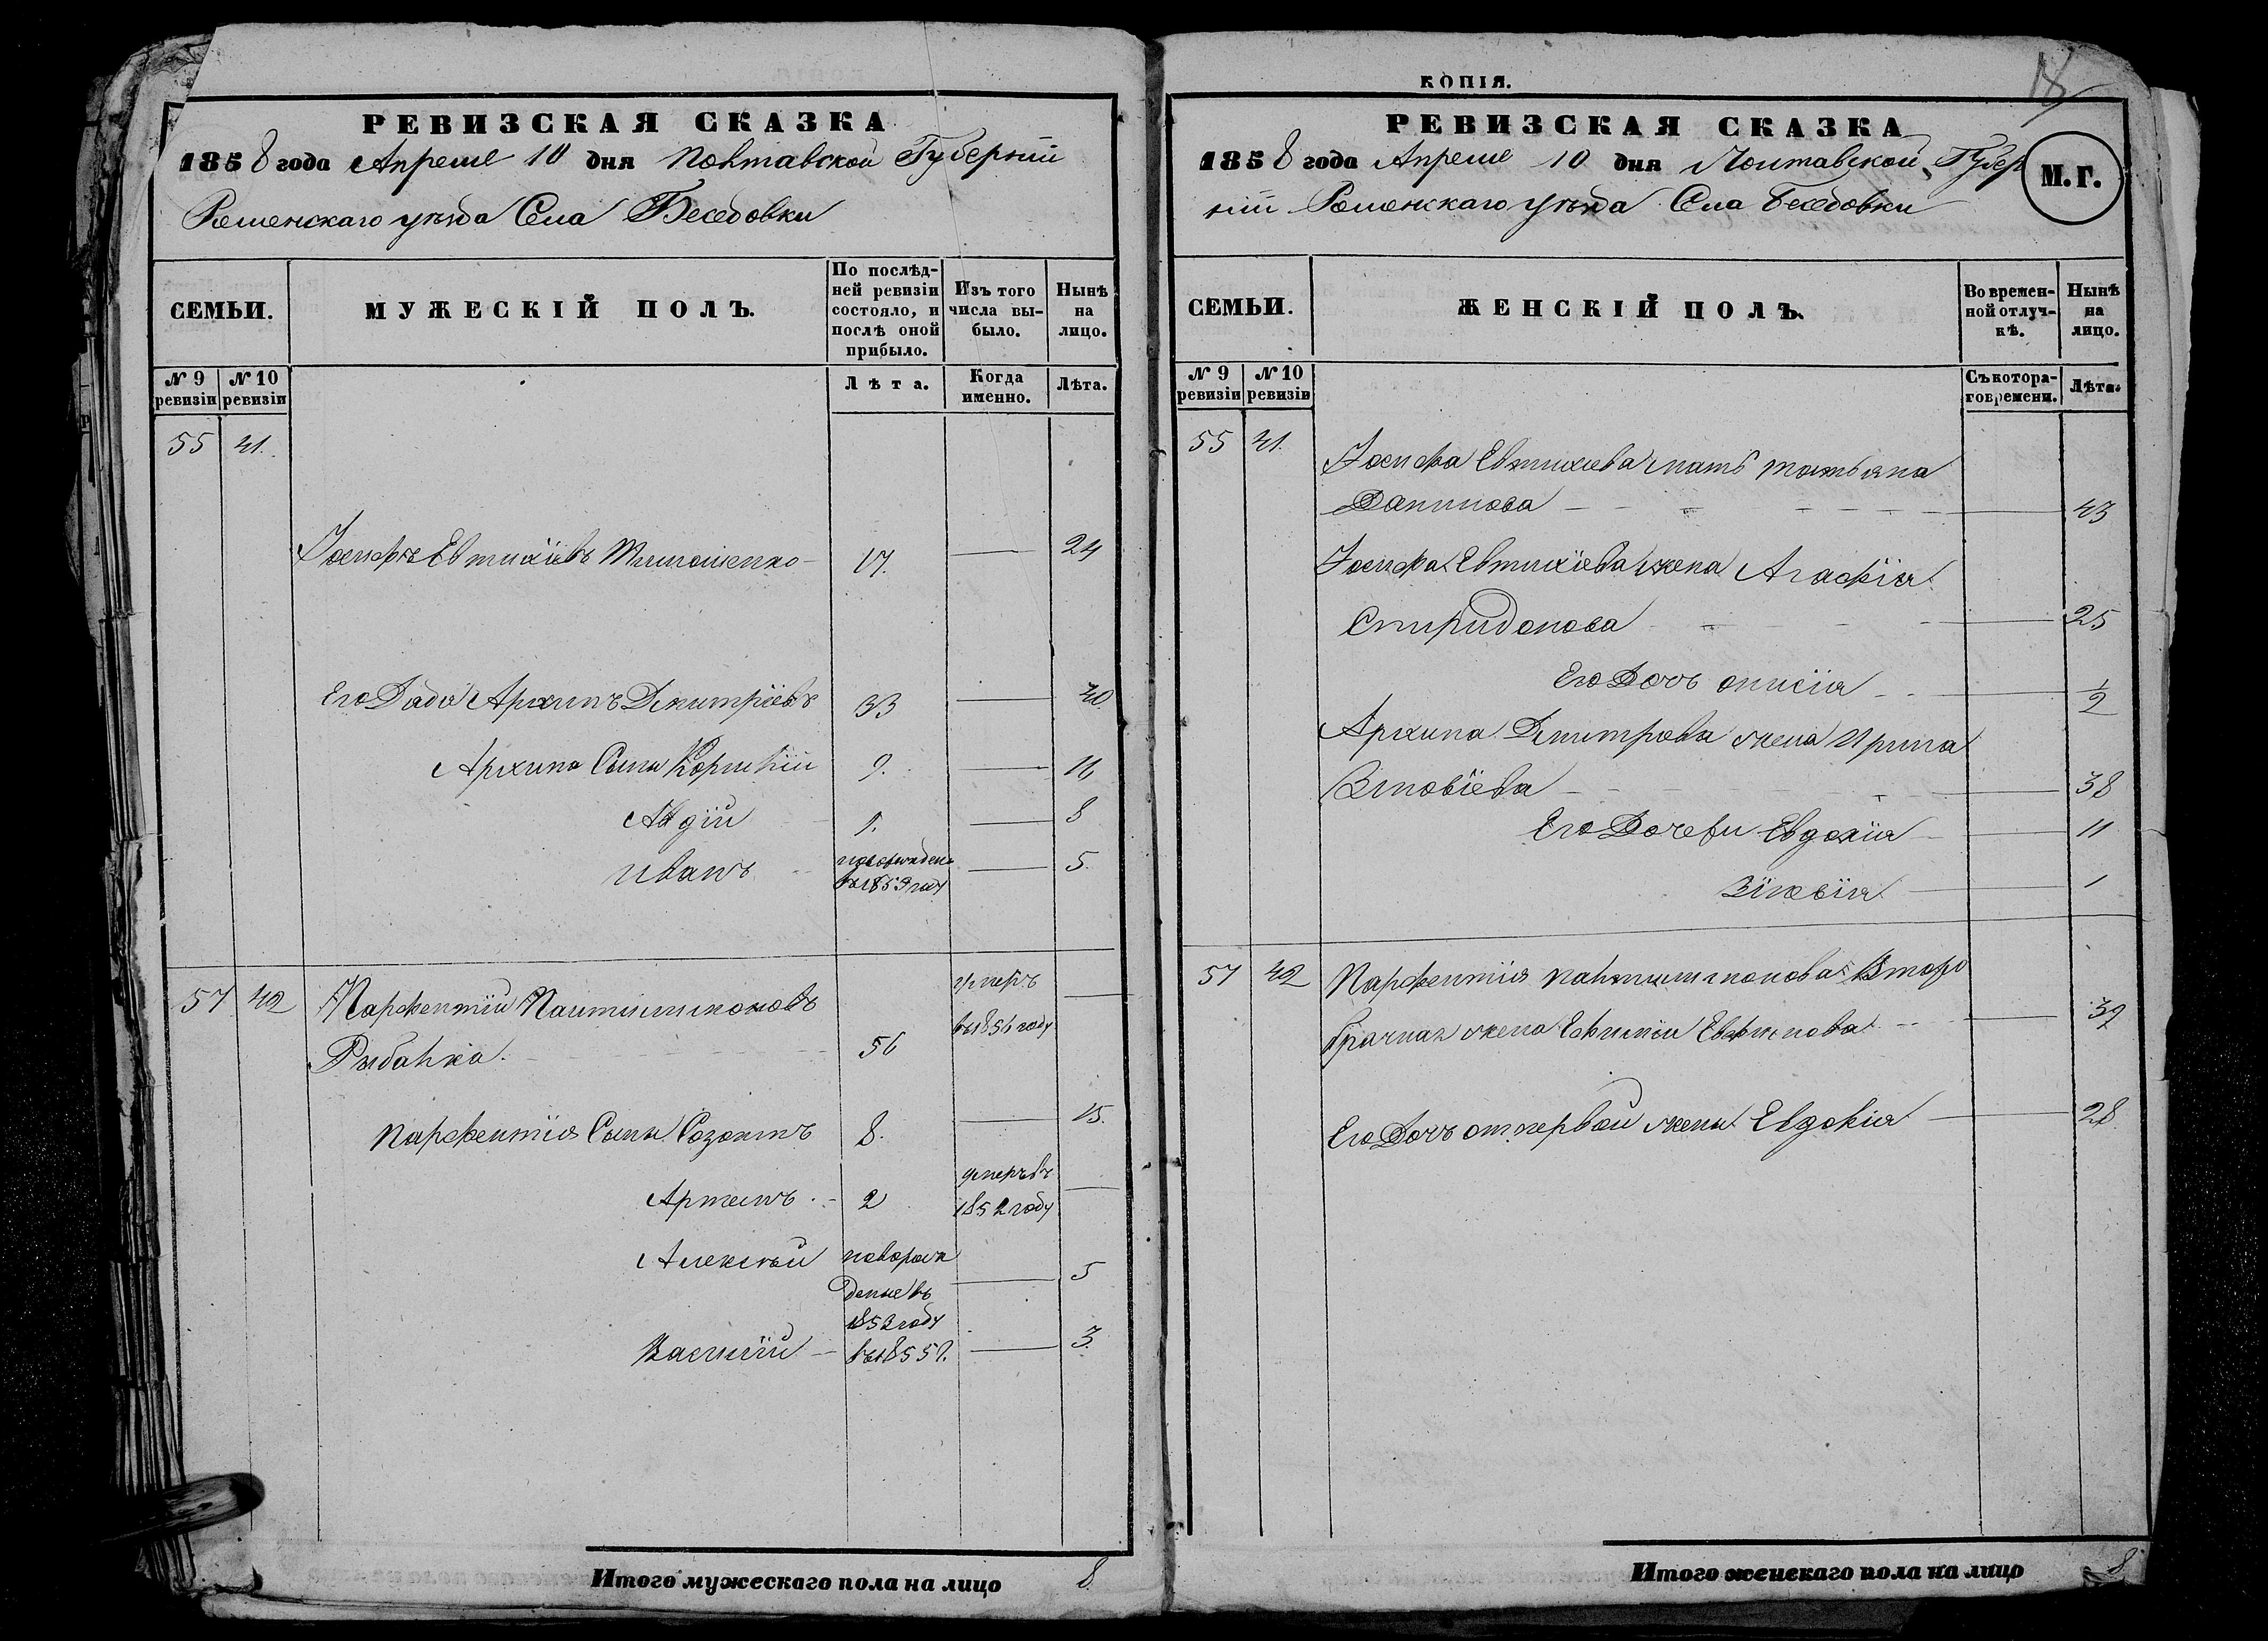 РЕВИЗСКАЯ СКАЗКА
1858 года Апреля 10 дня Полтавской Губерніи
Роменскаго уѣзда Села Беседовки
СЕМЬИ.
МУЖЕСКІЙ ПОЛЪ.
По послѣд-
ней ревизіи
состояло, и
послѣ оной
прибыло.
Изъ того
числа вы-
было.
Нынѣ
на
лицо.
№ 9
ревизіи
№ 10
ревизіи
Лѣта.
Когда
именно.
Лѣта.
55 41.
Іосифъ Евтихіевъ Тимошенко 17. — 24
Его Дядя Архипъ Дмитріевъ 33 — 40
Архипа Сыны Корнилій 9. — 16
Авдій 1. — 8
Иванъ — 5.
новорожденъ
въ 1853 году
57 42 Парфентій Пантилимоновъ
Рыбалка. 56
умеръ
въ 1856 году
Парфентія Сыны Созонтъ 8. — 15.
Артемъ 2
умеръ въ
1852 году
Алексѣй — 5
новорож
деные въ
1852 году
Василій — въ 1855 г. — 3.
Итого мужескаго пола на лицо 8.
КОПІЯ.
18
РЕВИЗСКАЯ СКАЗКА
1858 года Апреля 10 дня Полтавской Губер
ніи Роменскаго уѣзда Села Беседовки
М. Г.
СЕМЬИ.
ЖЕНСКІЙ ПОЛЪ.
Во времен-
ной отлуч-
кѣ.
Нынѣ
на
лицо.
№ 9
ревизіи
№ 10
ревизіи
Съ котора-
го времени.
Лѣта.
55 41.
Іосифа Евтихиева мать татьяна
Данилова — 43
Іосифа Евтихіева жена Агафія
Спиридонова — 25
Его Дочь — 1/2
Архипа Дмитрова жена Ирина
Зиновіева — 38
Его Дочери Евдокія — 11
Зіновія — 1
57 42 Парфентія Пантилимонова Второ
брачная жена Ефимія — 39
Его Дочь от первой жены Евдокія — 28
Итого женскаго пола на лицо 8